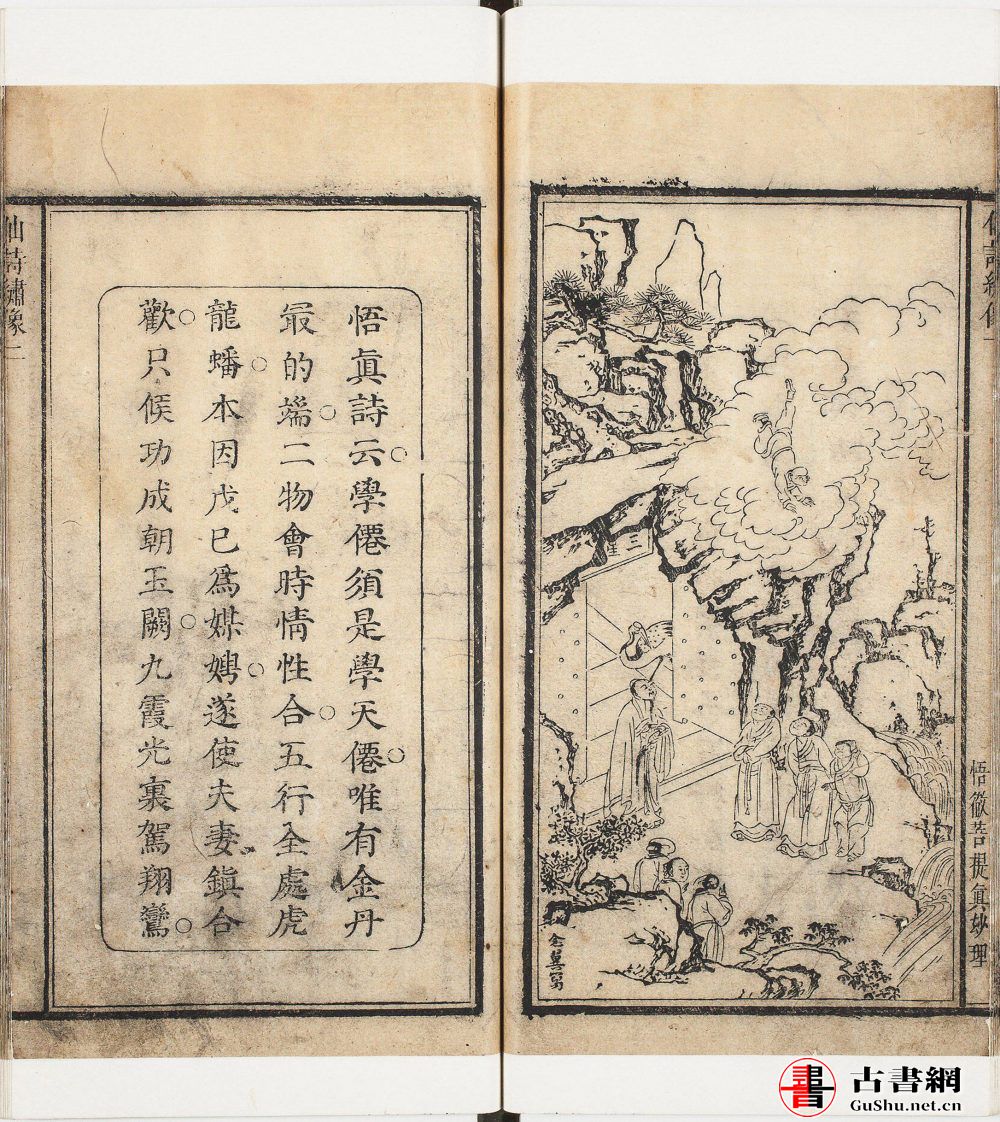 悟徹菩提眞妙理
三星
仙詩繡像二
悟眞詩云學僊須是學天僊唯有金丹
最的端二物會時情性合五行全處虎
龍蟠本因戊已爲媒娉遂使夫妻鎭合
歡只候功成朝玉闕九霞光裏駕翔鸞
古書網
GuShu.net.cn